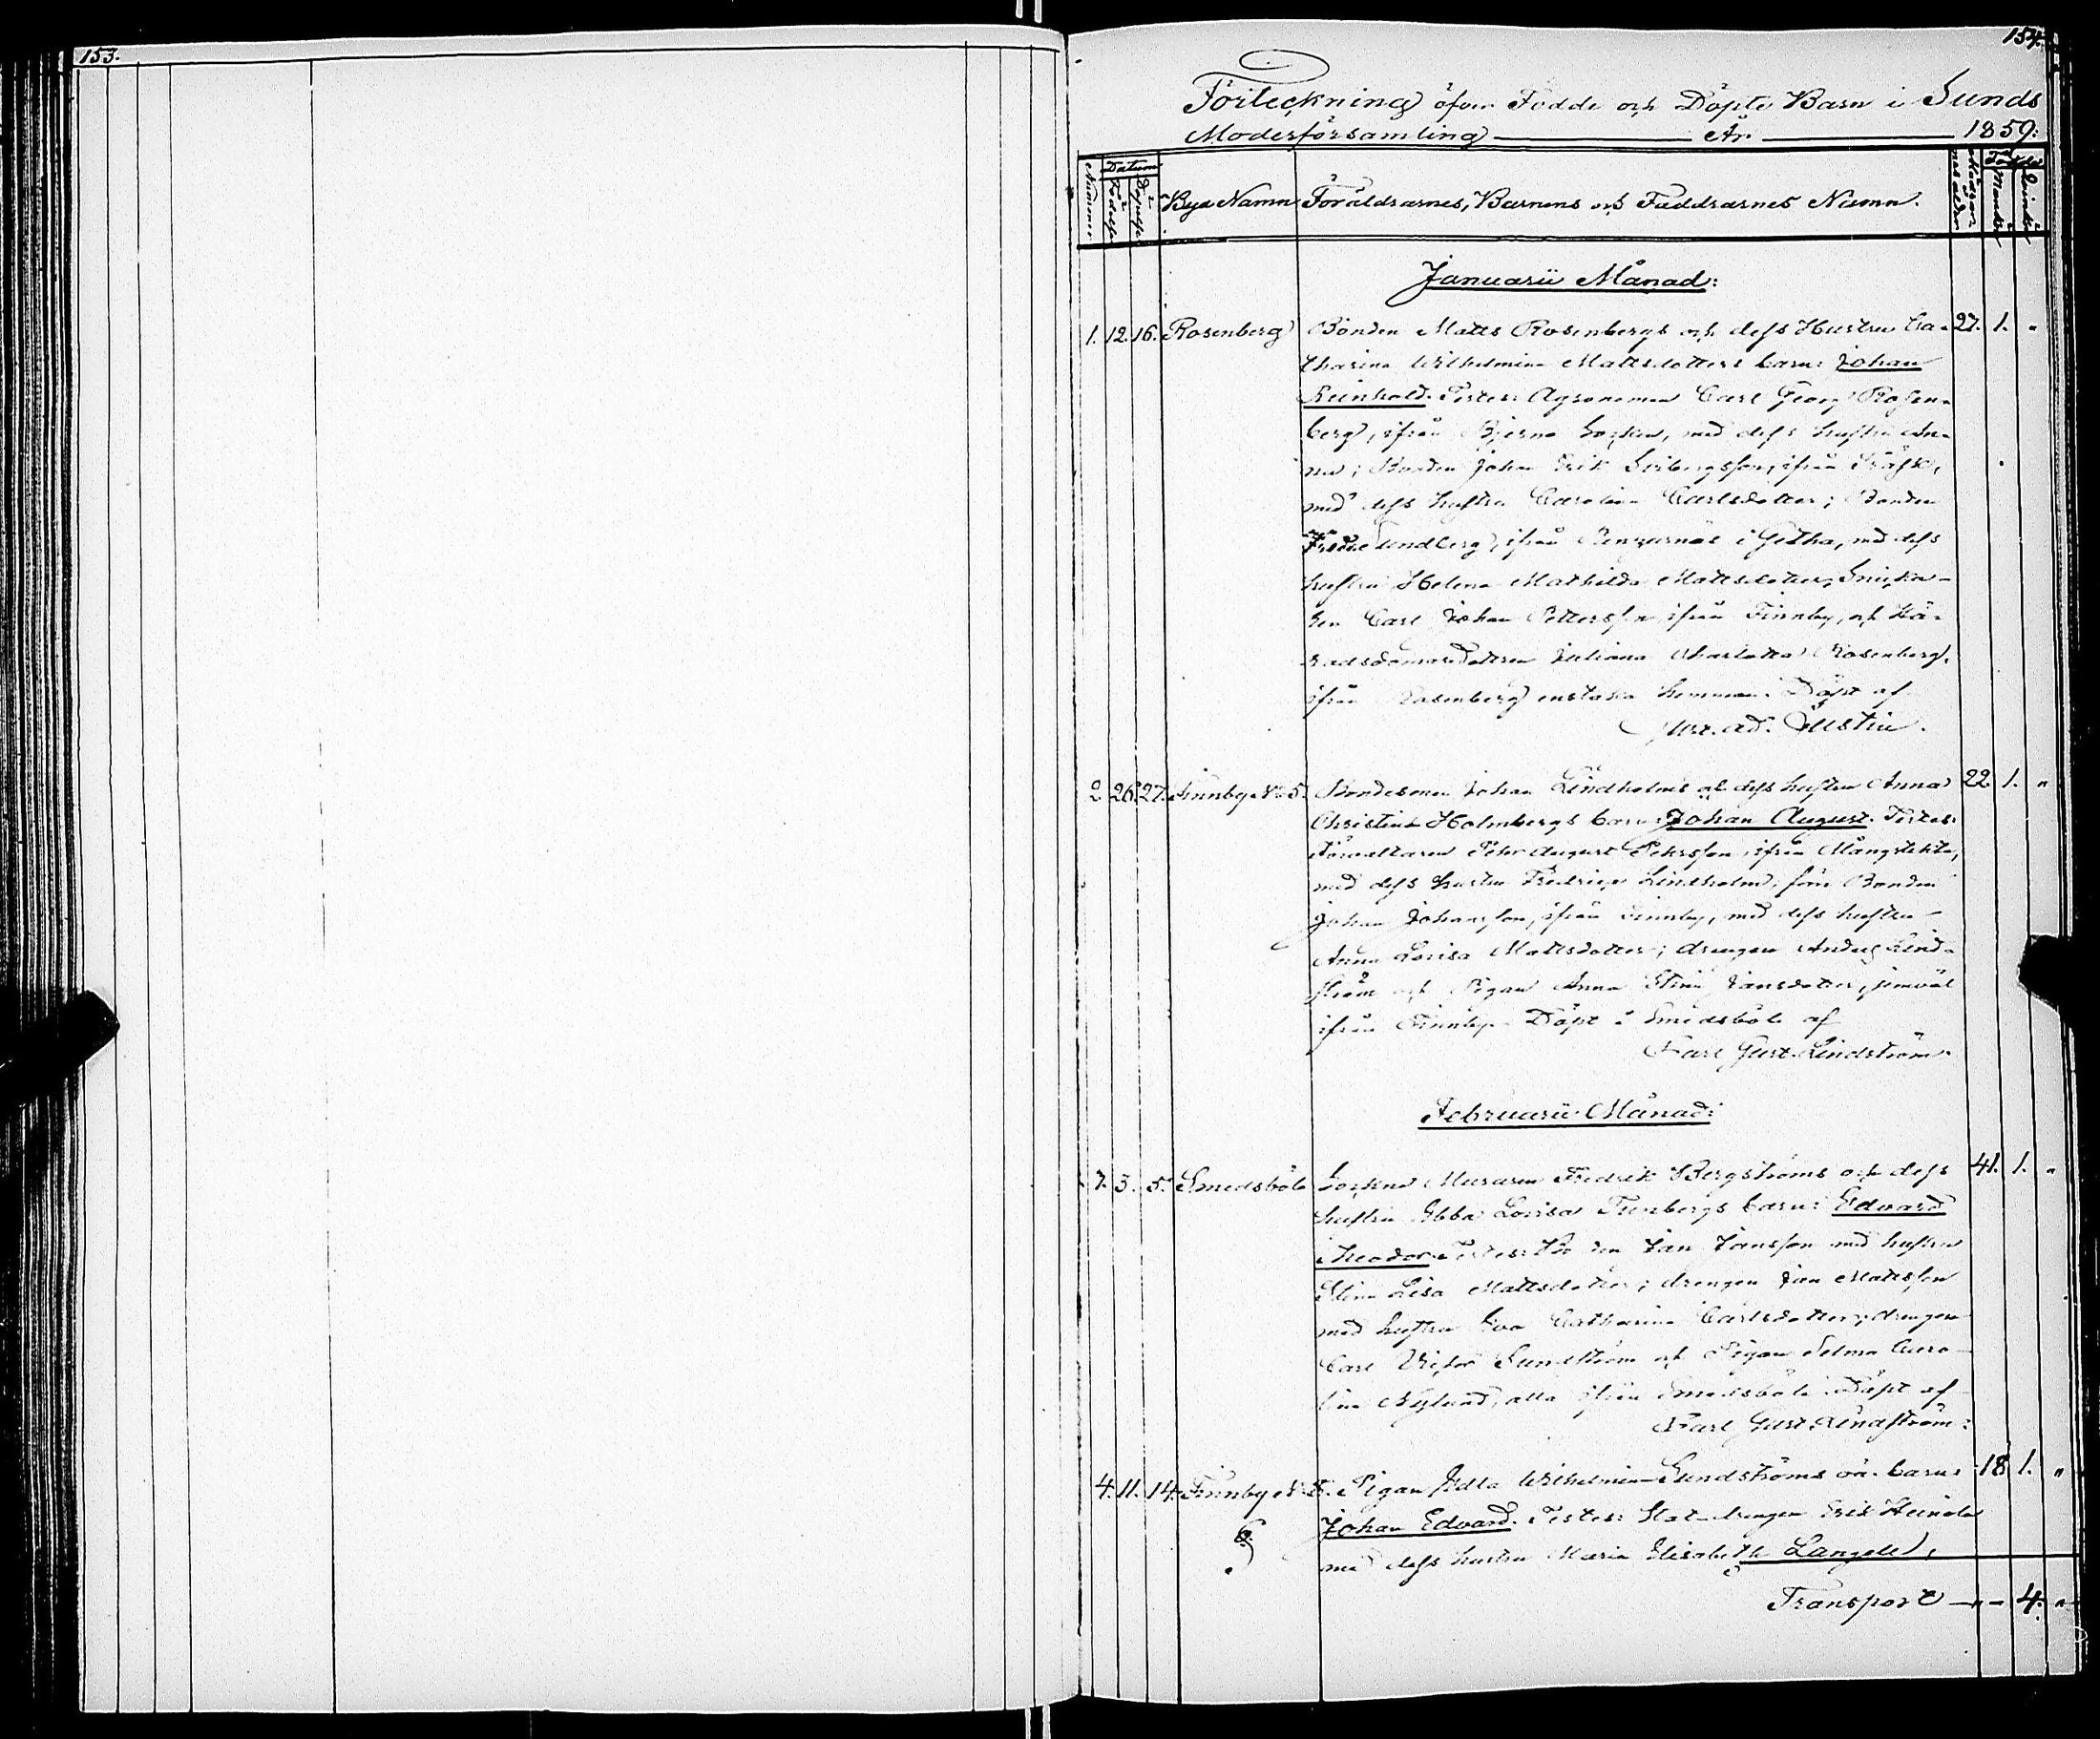 153.
154.
Förteckning öfver Födde och Döpte Barn i Sunds
Moderförsamling År 1859:
Nummer Datum Födelse Döpelse Bya Namn Föräldrarnes, Barnens och Faddrarnes Namn. Mankön Qvinkön
Januarii Månad:
1. 12. 16. Rosenberg Bonden Matts Rosenbergs och dess Hustru Ca- 27. 1. "
tharina Wilhelmina Mattsdotters barn: Johan
Reinhold. Testes: Agronomen Carl Georg Rosen-
berg, ifrån Bjerno Socken, med dess hustru An-
na; Bonden Johan Erik ifrån Träsk,
med dess hustru Carolina Carlsdotter; Bonden
Sundberg, ifrån i Getha, med dess
hustru Helena Mathilda Mattsdotter, Snicka-
ren Carl Johan Pettersson ifrån Finnby, och Hä-
radsdomaredottren Juliana Charlotta Rosenberg,
ifrån Rosenberg enstaka hemman. Döpt af
2. 26. 27. Finnby No 5. Bondesonen Johan Lindholms och dess hustru Anna 22. 1. "
Christina Holmbergs barn: Johan August. Testes:
Förvaltaren Pehr August Pehrsson, ifrån Mångstekta,
med dess hustru Lindholm; Bonden
Johan Johansson, ifrån Finnby, med dess hustru
Anna Lovisa Mattsdotter; drengen Anders Lind-
ström och Pigan Anna Stina Jansdotter, jemväl
ifrån Finnby. Döpt i Smedsböle af
Karl Gust. Lindström.
Februarii Månad:
3. 5. Smedsböle Sockne Muraren Fredrik Bergströms och dess 41. 1. "
hustru Ebba Lovisa barn: Edvard
Theodor. Testes: Jan Jansson med hustru
Stina Lisa Mattsdotter; drengen Jan Mattsson
med hustru Eva Catharina Carlsdotter; drengen
Carl Victor Sundström och Pigan Selma Caro-
lina Nylund, alla ifrån Smedsböle. Döpt af
Karl Gust. Lindström:
4. 11. 14. Finnby No 5. Pigan Edla Wilhelmina Sundströms oä. barn: 18 1. "
Johan Edvard. Testes: Stat-drengen Erik
med dess hustru Maria Elisabeth
Transport — " — 4. "